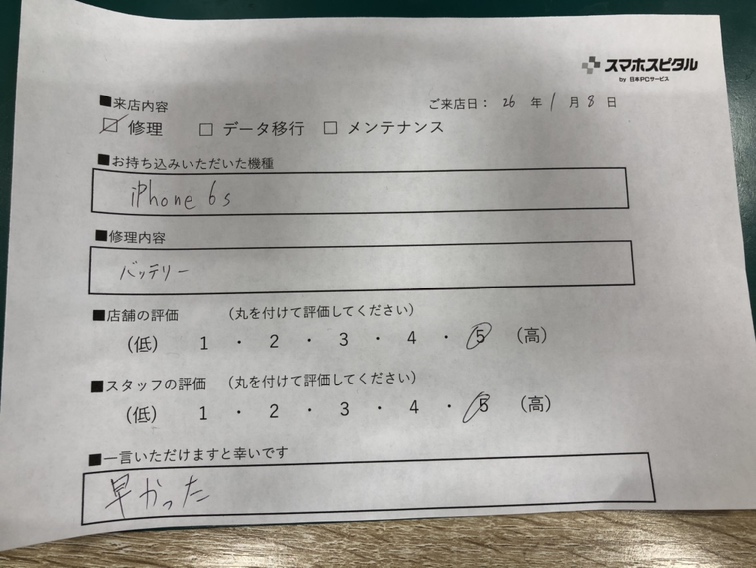 スマホスピタル
by 日本PCサービス
■来店内容
ご来店日： 26 年 1 月 8 日
☑ 修理 □ データ移行 □ メンテナンス
■お持ち込みいただいた機種
iPhone 6s
■修理内容
バッテリー
■店舗の評価 （丸を付けて評価してください）
（低） 1 ・ 2 ・ 3 ・ 4 ・ 5 （高）
■スタッフの評価 （丸を付けて評価してください）
（低） 1 ・ 2 ・ 3 ・ 4 ・ 5 （高）
■一言いただけますと幸いです
早かった